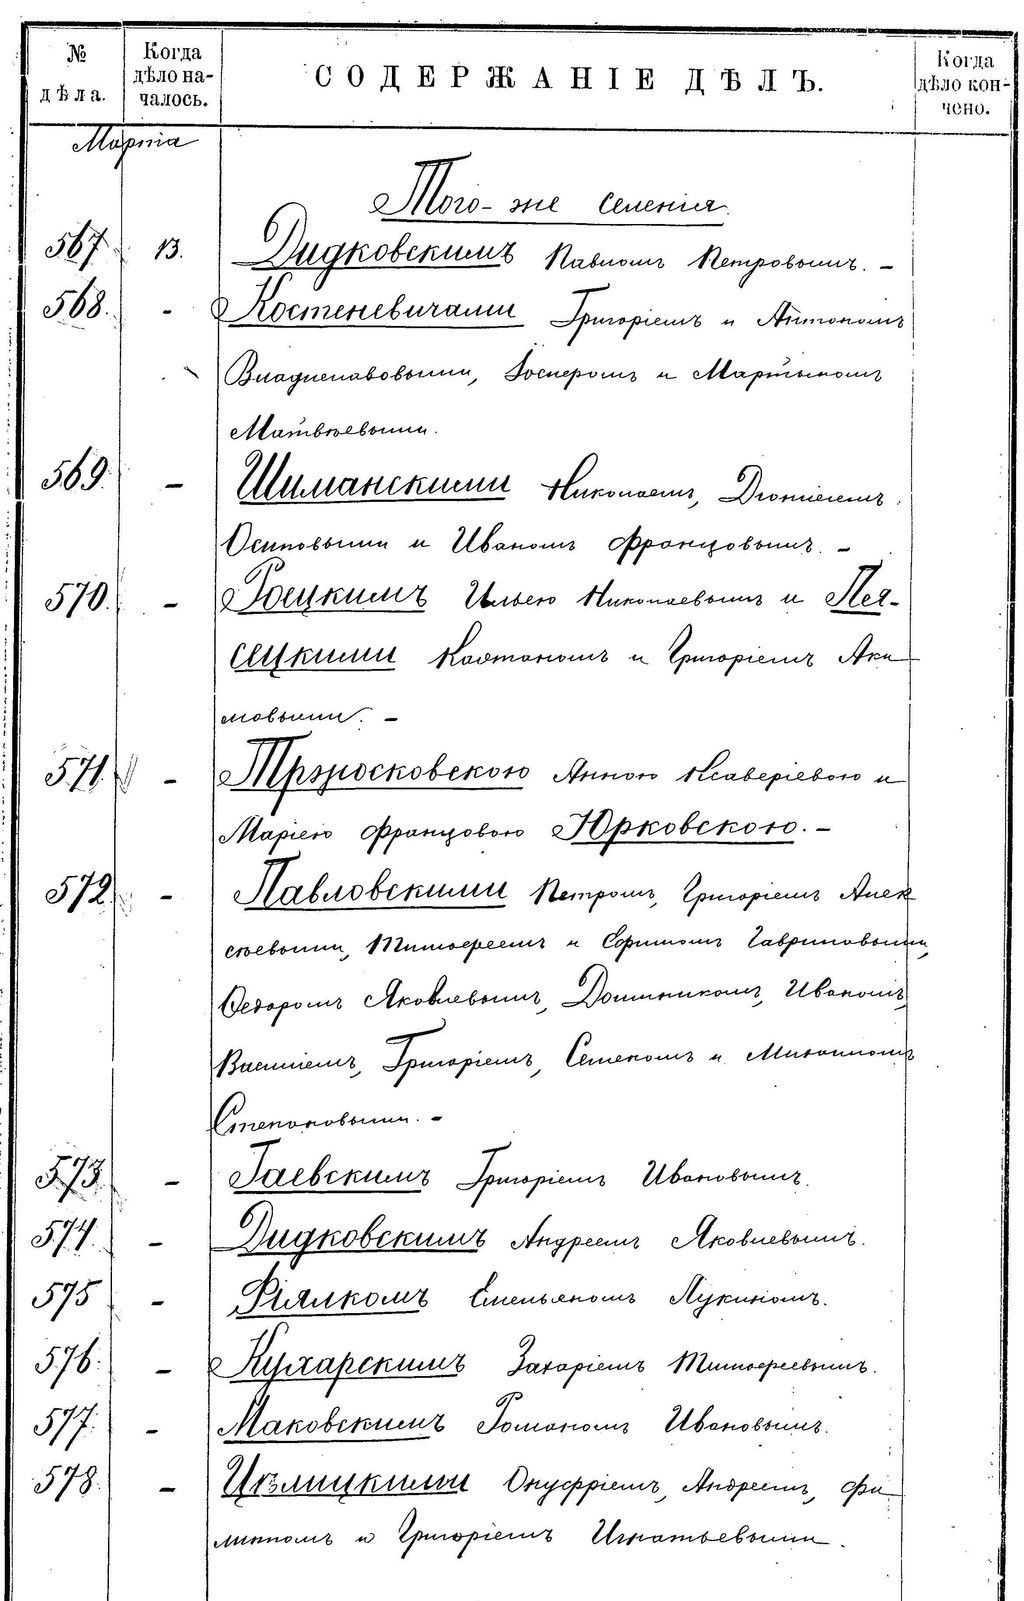 № дѣла.
Когда дѣло началось.
СОДЕРЖАНІЕ ДѢЛЪ.
Когда дѣло кончено.
Марта
Того-же селенія.
567 13. Дидковскимъ Павломъ Петровымъ. -
568. - Костеневичами Григоріемъ и Антономъ
Владиславовыми, Іосифомъ и Мартыномъ
Матвѣевыми.
569. - Шиманскими Николаемъ, Діонисіемъ
Осиповыми и Иваномъ Францовымъ. -
570. - Роецкимъ Ильею Николаевымъ и Пея-
сецкими Каэтаномъ и Григоріемъ Аки
мовыми. -
571. - Анною Ксаверіевою и
Маріею Францовою Юрковскою. -
572. - Павловскими Петромъ, Григоріемъ Алек
сѣевыми, Тимофеемъ и Гавриловыми,
Федоромъ Яковлевымъ, Доминикомъ, Иваномъ,
Василіемъ, Григоріемъ, Семеномъ и Михаиломъ
Степановыми. -
573. - Гаевскимъ Григоріемъ Ивановымъ.
574. - Дидковскимъ Андреемъ Яковлевымъ.
575 - Емельяномъ Лукинымъ.
576. - Кухарскимъ Захаріемъ Тимофеевымъ.
577. - Маковскимъ Романомъ Ивановымъ.
578. - Цѣлицкими Онуфріемъ, Андреемъ, Фи
липпомъ и Григоріемъ Игнатьевыми.